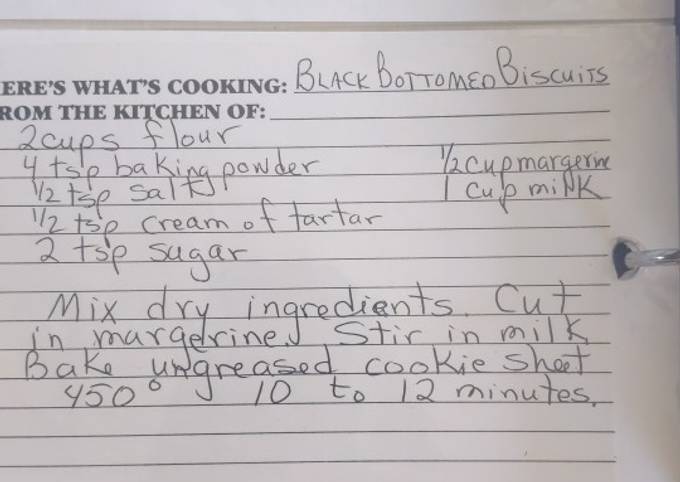 ERE'S WHAT'S COOKING: BLACK BOTTOMED BISCUITS
ROM THE KITCHEN OF:
2 cups flour
4 tsp baking powder 1/2 cup margerine
1/2 tsp salt 1 cup milk
1/2 tsp cream of tartar
2 tsp sugar
Mix dry ingredients. Cut
in margerine. Stir in milk
Bake ungreased cookie sheet
450° 10 to 12 minutes.